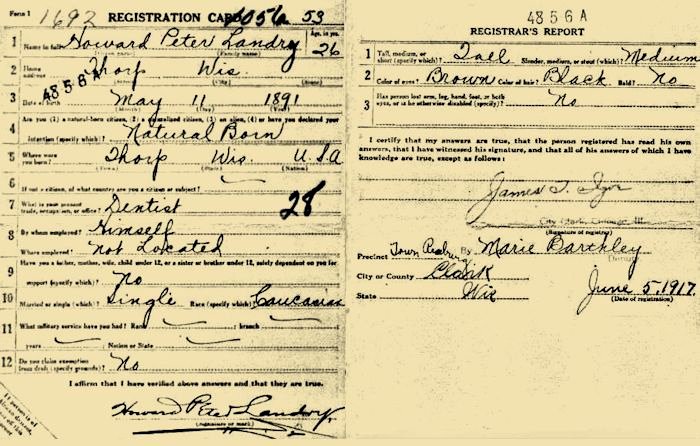 Form 1 1692 REGISTRATION CARD 1056 53
1 Name in full Howard Peter Landry Age, in yrs. 26
(Family name)
2 Home address Thorp Wis.
(City) (State)
4856A
3 Date of birth May 11 1891
(Month) (Day) (Year)
4 Are you (1) a natural-born citizen, (2) a naturalized citizen, (3) an alien, (4) or have you declared your
intention (specify which)? Natural Born
5 Where were you born? Thorp Wis. U.S.A
(Town) (State) (Nation)
6 If not a citizen, of what country are you a citizen or subject?
7 What is your present trade, occupation, or office? Dentist 28
8 By whom employed? Himself
Where employed? Not Located
9 Have you a father, mother, wife, child under 12, or a sister or brother under 12, solely dependent on you for
support (specify which)? No
10 Married or single (which)? Single Race (specify which)? Caucasian
11 What military service have you had? Rank ; branch
years ; Nation or State
12 Do you claim exemption from draft (specify grounds)? No
I affirm that I have verified above answers and that they are true.
Howard Peter Landry
(Signature or mark)
4856A
REGISTRAR'S REPORT
1 Tall, medium, or short (specify which)? Tall Slender, medium, or stout (which)? Medium
2 Color of eyes? Brown Color of hair? Black Bald? No
3 Has person lost arm, leg, hand, foot, or both
eyes, or is he otherwise disabled (specify)? No
I certify that my answers are true, that the person registered has read his own
answers, that I have witnessed his signature, and that all of his answers of which I have
knowledge are true, except as follows:
James T. Igoe
City Clerk, Chicago, Ill.
(Signature of registrar)
By Marie Barchley
Precinct Town
City or County Clark
State Wis June 5, 1917
(Date of registration)